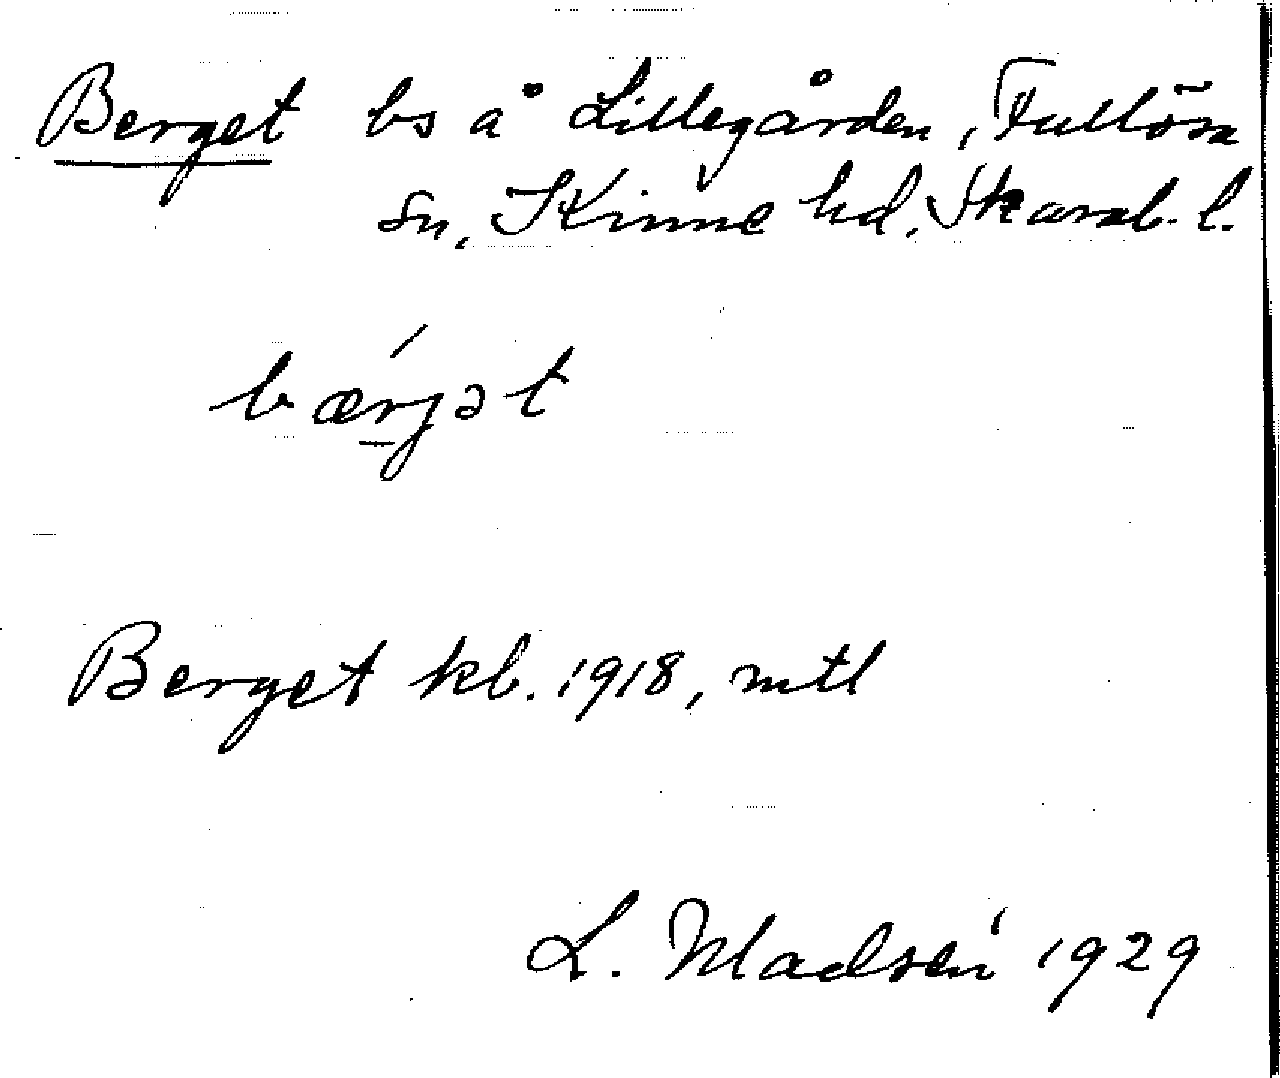 Berget bs å Lillegården, Fullösa
sn, Kinne hd, Skarab. l.
bærjət
Berget kb. 1918, mtl
L. Madsén 1929